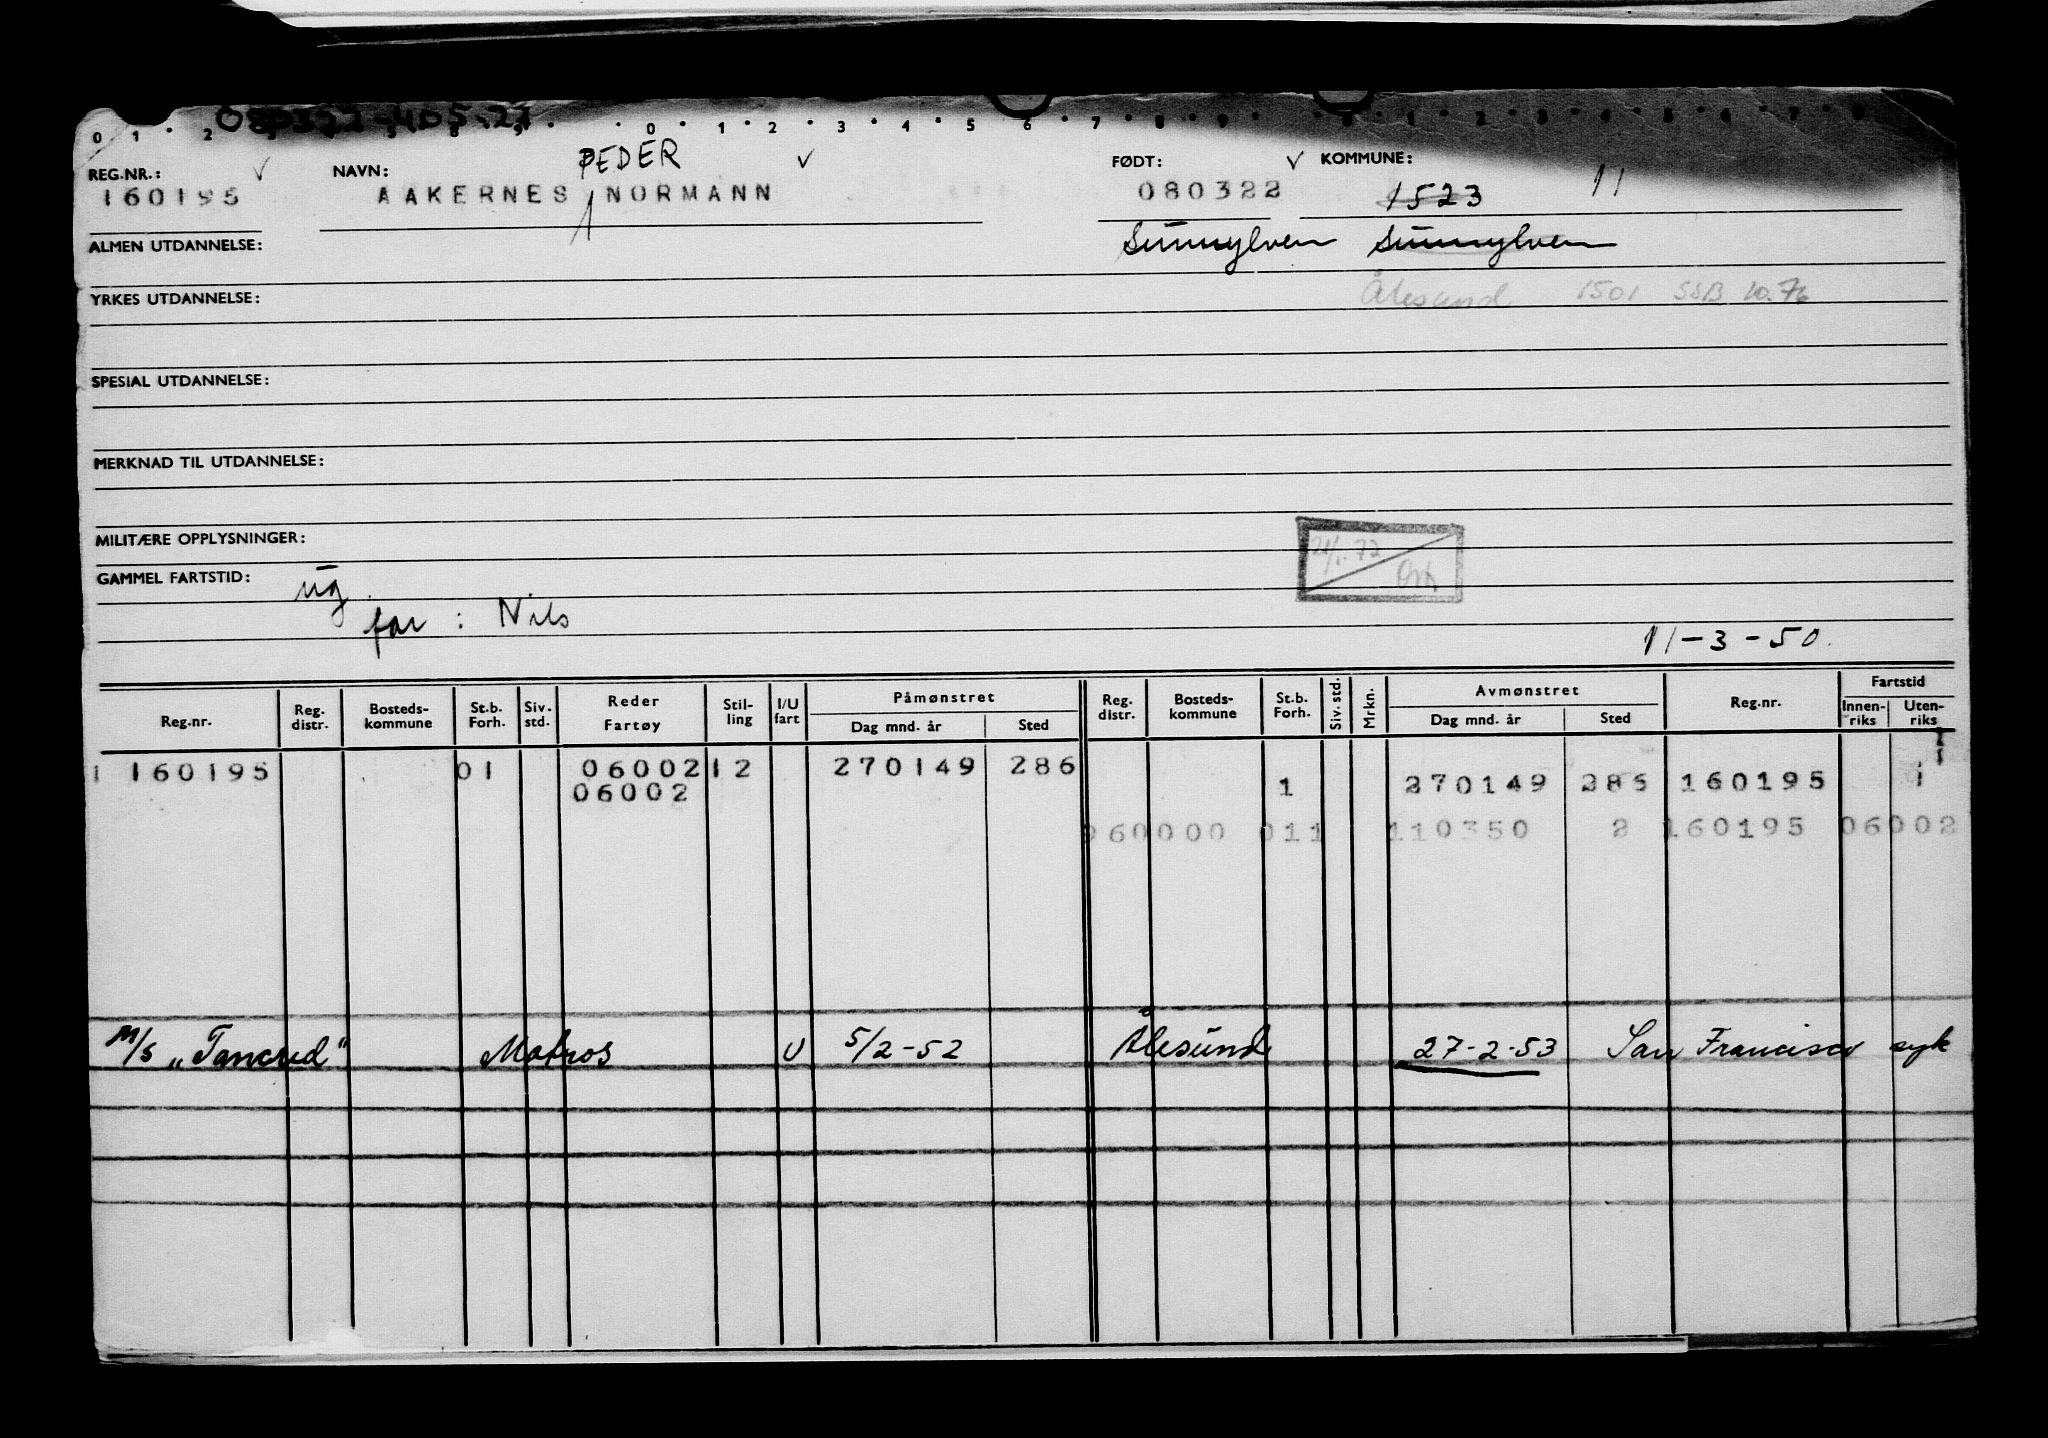 080322-405.27
0 1 2 0 1 2 3 4 5 6 7 8 9
REG.NR.: NAVN: PEDER FØDT: KOMMUNE:
160195 AAKERNES NORMANN 080322 1523 11
ALMEN UTDANNELSE: Sunnylven Sunnylven
YRKES UTDANNELSE: Ålesund 1501 SSB 10.76
SPESIAL UTDANNELSE:
MERKNAD TIL UTDANNELSE:
MILITÆRE OPPLYSNINGER:
GAMMEL FARTSTID: ug
far : Nils
11-3-50.
Reg.nr. Reg. distr. Bosteds-kommune St.b. Forh. Siv. std. Reder Fartøy Stil-ling I/U fart Påmønstret Dag mnd. år Sted Reg. distr. Bosteds-kommune St.b. Forh. Siv. std. Mrkn. Avmønstret Dag mnd. år Sted Reg.nr. Fartstid Innen-riks Uten-riks
1 160195 01 06002 12 270149 286
06002 1 270149 286 160195 1
960000 011 110350 2 160195 06002
M/S "Tancred" Matros U 5/2-52 Ålesund 27-2-53 San Francisco syk